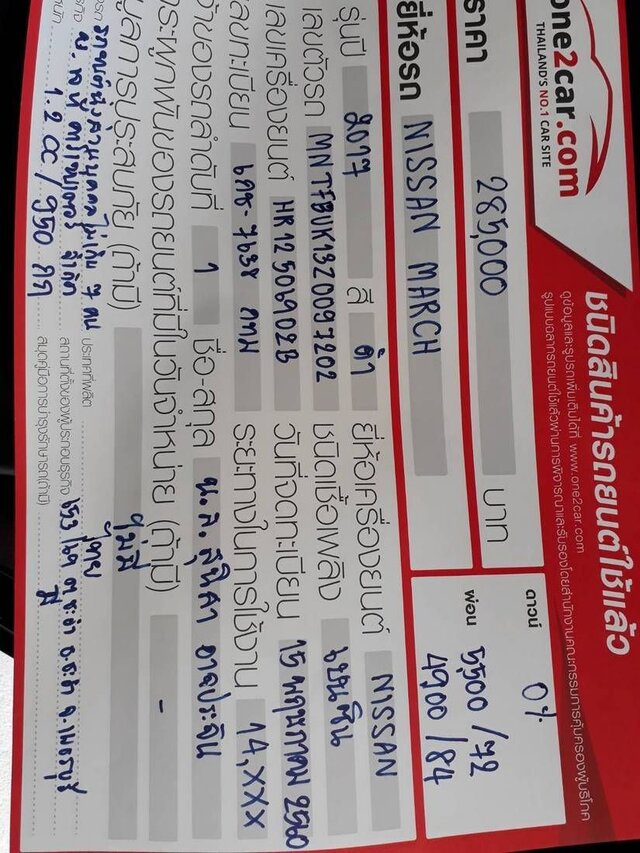 one2car.com
THAILAND'S NO.1 CAR SITE
ชนิดสินค้ารถยนต์ใช้แล้ว
ดูข้อมูลและรูปรถเพิ่มเติมได้ที่ www.one2car.com
รูปแบบฉลากรถยนต์ใช้แล้วผ่านการพิจารณาและรับรองโดยสำนักงานคณะกรรมการคุ้มครองผู้บริโภค
ราคา 285,000 บาท
ดาวน์ 0%
ผ่อน 5500/72
4900/84
ยี่ห้อรถ NISSAN MARCH
รุ่นปี 2017 สี ดำ ยี่ห้อเครื่องยนต์ NISSAN
เลขตัวรถ MNTEBUK13Z0097202 ชนิดเชื้อเพลิง เบนซิน
เลขเครื่องยนต์ HR12506902B วันที่จดทะเบียน 15 พฤษภาคม 2560
เลขทะเบียน กทม ระยะทางในการใช้งาน 14,XXX
เจ้าของรถลำดับที่ 1 ชื่อ-สกุล น.ส.
ภาระผูกพันของรถยนต์ที่มีในวันจำหน่าย (ถ้ามี) -
ข้อมูลการประสบภัย (ถ้ามี) ไม่มี
รถยนต์นั่งส่วนบุคคลไม่เกิน 7 คน ประเทศที่ผลิต ไทย
สถานที่ตั้งของผู้ประกอบธุรกิจ
1.2 CC / 950 สมุดคู่มือการบำรุงรักษารถ(ถ้ามี) มี